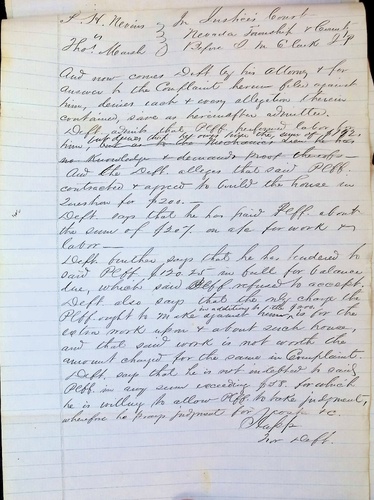 S. H. Nevins } In Justice's Court
vs } Nevada Township & County
Thos Marsh } Before J M Clark J.P.
And now comes Deft by his Attorney & for
answer to the Complaint herein filed against
him, denies each & every allegation therein
contained, save as hereinafter admitted.
Deft. admits that Plff performed labor for
him,
no knowledge & demands proof thereof—
And the Deft. alleges that said Plff.
contracted & agreed to build the house in
Question for $200.—
Deft. says that he has paid Plff about
the sum of $207 on a/c for work &
labor—
Deft. further says that he has tendered to
said Plff $120.25 in full for balance
due, which said Plff refused to accept.
Deft also says that the only charge the
in addition to the $200.
Plff. ought to make against him, is for the
extra work upon & about such house,
and that said work is not worth the
amount charged for the same in Complaint.
Deft. says that he is not indebted to said
Plff. in any sum exceeding for which
he is willing to allow Plff to take judgment,
wherefore he prays judgment for costs &c.
for Deft.